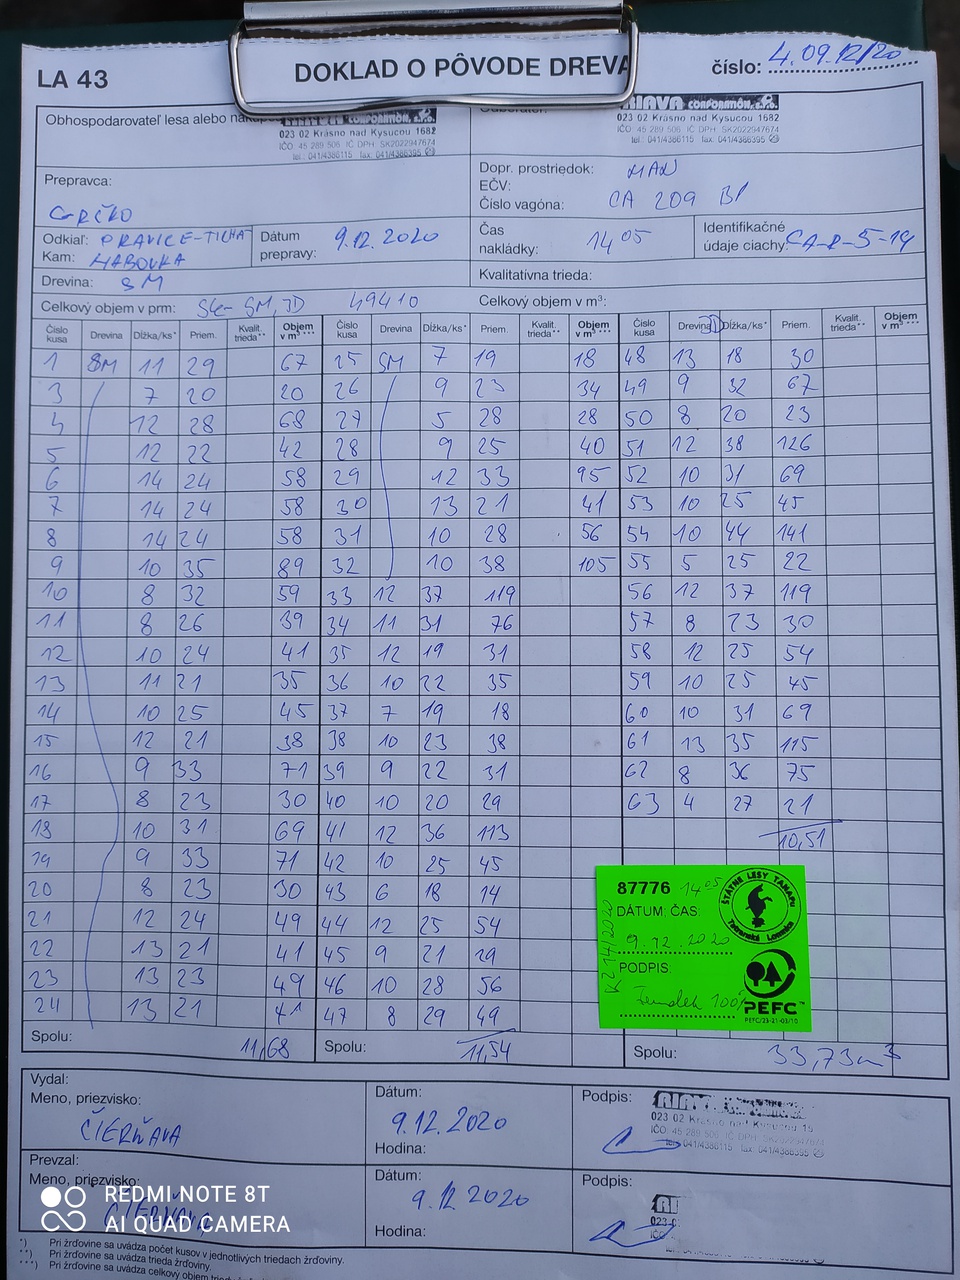 LA 43
DOKLAD O PÔVODE DREVA
číslo: 4.09.12/20
Obhospodarovateľ lesa alebo
CORPORATION, s.r.o.
023 02 Krásno nad Kysucou 1682
IČO: 45 289 506 IČ DPH: SK2022947674
tel.: 041/4386115 fax: 041/4386395
RIAVA CORPORATION, s.r.o.
023 02 Krásno nad Kysucou 1682
IČO: 45 289 506 IČ DPH: SK2022947674
tel.: 041/4386115 fax: 041/4386395
Prepravca:
GRČKO
Dopr. prostriedok: MAN
EČV:
Číslo vagóna: CA 209 BI
Odkiaľ: PRAVICE-TICHA
Kam: HABOVKA
Dátum prepravy: 9.12.2020
Čas nakládky: 14 05
Identifikačné údaje ciachy: CA-R-5-19
Drevina: SM
Kvalitatívna trieda:
Celkový objem v prm: SK- SM, JD 49410
Celkový objem v m³:
Číslo kusa Drevina Dĺžka/ks* Priem. Kvalit. trieda** Objem v m³ *** Číslo kusa Drevina Dĺžka/ks* Priem. Kvalit. trieda** Objem v m³ *** Číslo kusa Drevina JD Dĺžka/ks* Priem. Kvalit. trieda** Objem v m³ ***
1 SM 11 29 67 25 SM 7 19 18 48 13 18 30
3 7 20 20 26 9 23 34 49 9 32 67
4 12 28 68 27 5 28 28 50 8 20 23
5 12 22 42 28 9 25 40 51 12 38 126
6 14 24 58 29 12 33 95 52 10 31 69
7 14 24 58 30 13 21 41 53 10 25 45
8 14 24 58 31 10 28 56 54 10 44 141
9 10 35 89 32 10 38 105 55 5 25 22
10 8 32 59 33 12 37 119 56 12 37 119
11 8 26 39 34 11 31 76 57 8 23 30
12 10 24 41 35 12 19 31 58 12 25 54
13 11 21 35 36 10 22 35 59 10 25 45
14 10 25 45 37 7 19 18 60 10 31 69
15 12 21 38 38 10 23 38 61 13 35 115
16 9 33 71 39 9 22 31 62 8 36 75
17 8 23 30 40 10 20 29 63 4 27 21
18 10 31 69 41 12 36 113 10,51
19 9 33 71 42 10 25 45
20 8 23 30 43 6 18 14
21 12 24 49 44 12 25 54
22 13 21 41 45 9 21 29
23 13 23 49 46 10 28 56
24 13 21 41 47 8 29 49
Spolu: 11,68 Spolu: 11,54 Spolu: 33,73 m³
87776 14 05
DÁTUM, ČAS:
9.12.2020
PODPIS:
100%
KZ 14/2020
ŠTÁTNE LESY TANAPU
Tatranská Lomnica
PEFC™
PEFC/23-21-03/10
Vydal:
Meno, priezvisko:
ČIERŇAVA
Dátum:
9.12.2020
Hodina:
Podpis:
RIAVA
023 02 Krásno nad Kysucou 16
IČO: 45 289 506 IČ DPH: SK2022947674
tel.: 041/4386115 fax: 041/4386395
Prevzal:
Meno, priezvisko:
Dátum:
9.12 2020
Hodina:
Podpis:
REDMI NOTE 8T
AI QUAD CAMERA
*) Pri žrďovine sa uvádza počet kusov v jednotlivých triedach žrďoviny.
**) Pri žrďovine sa uvádza trieda žrďoviny.
***) Pri žrďovine sa uvádza celkový objem